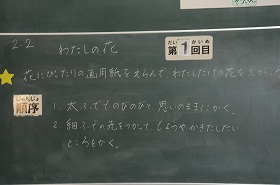 2-2
わたしの花
だい かいめ
第1回目
花にぴったりの画用紙をえらんで わたしだけの花をえがこう
じゅんじょ
順序
1. 太ふででのびのびと 思いのままにかく。
2. 細ふでの先をつかって もようやかきたしたい
ところをかく。